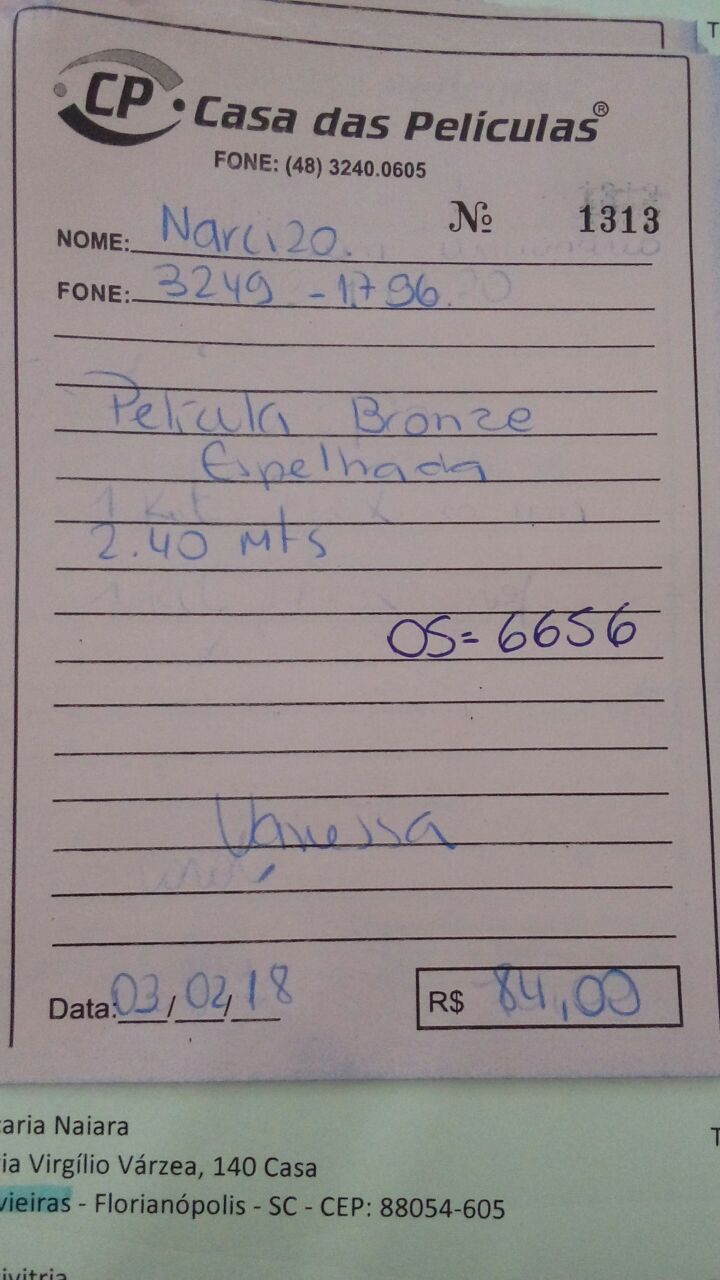 CP Casa das Películas®
FONE: (48) 3240.0605
Nº 1313
NOME: Narcizo.
FONE: 3249-1796.
Película Bronze
Espelhada
2.40 mts
OS= 6656
Vanessa
Data: 03/02/18
R$ 84,00
caria Naiara
ria Virgílio Várzea, 140 Casa
vieiras - Florianópolis - SC - CEP: 88054-605
T
T
ivitria